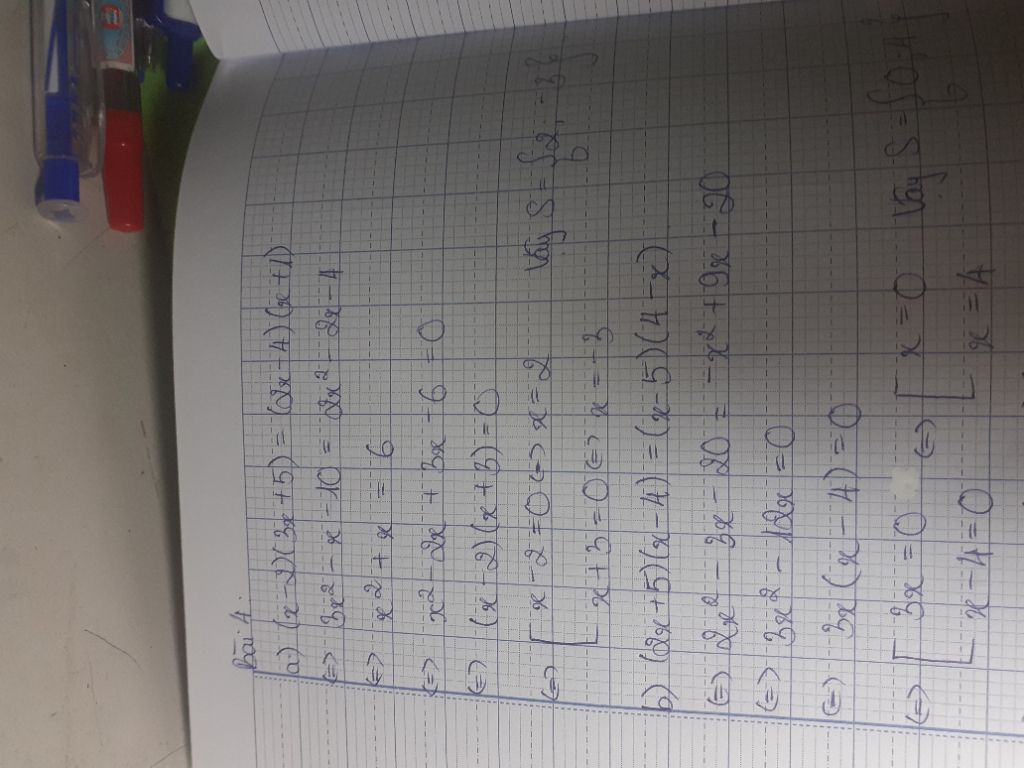 Bài 4.
a) (x-2)(3x+5) = (2x-4)(x+1)
(=) 3x² - x - 10 = 2x² - 2x - 4
(=) x² + x = 6
(=) x² - 2x + 3x - 6 = 0
(=) (x-2)(x+3) = 0
(=) [ x - 2 = 0 (=) x = 2 Vậy S = {2, -3}
x + 3 = 0 (=) x = -3
b) (2x+5)(x-4) = (x-5)(4-x)
(=) 2x² - 3x - 20 = -x² + 9x - 20
(=) 3x² - 12x = 0
(=) 3x(x-4) = 0
(=) [ 3x = 0 (=) [ x = 0 Vậy S = {0,4}
x - 4 = 0 x = 4